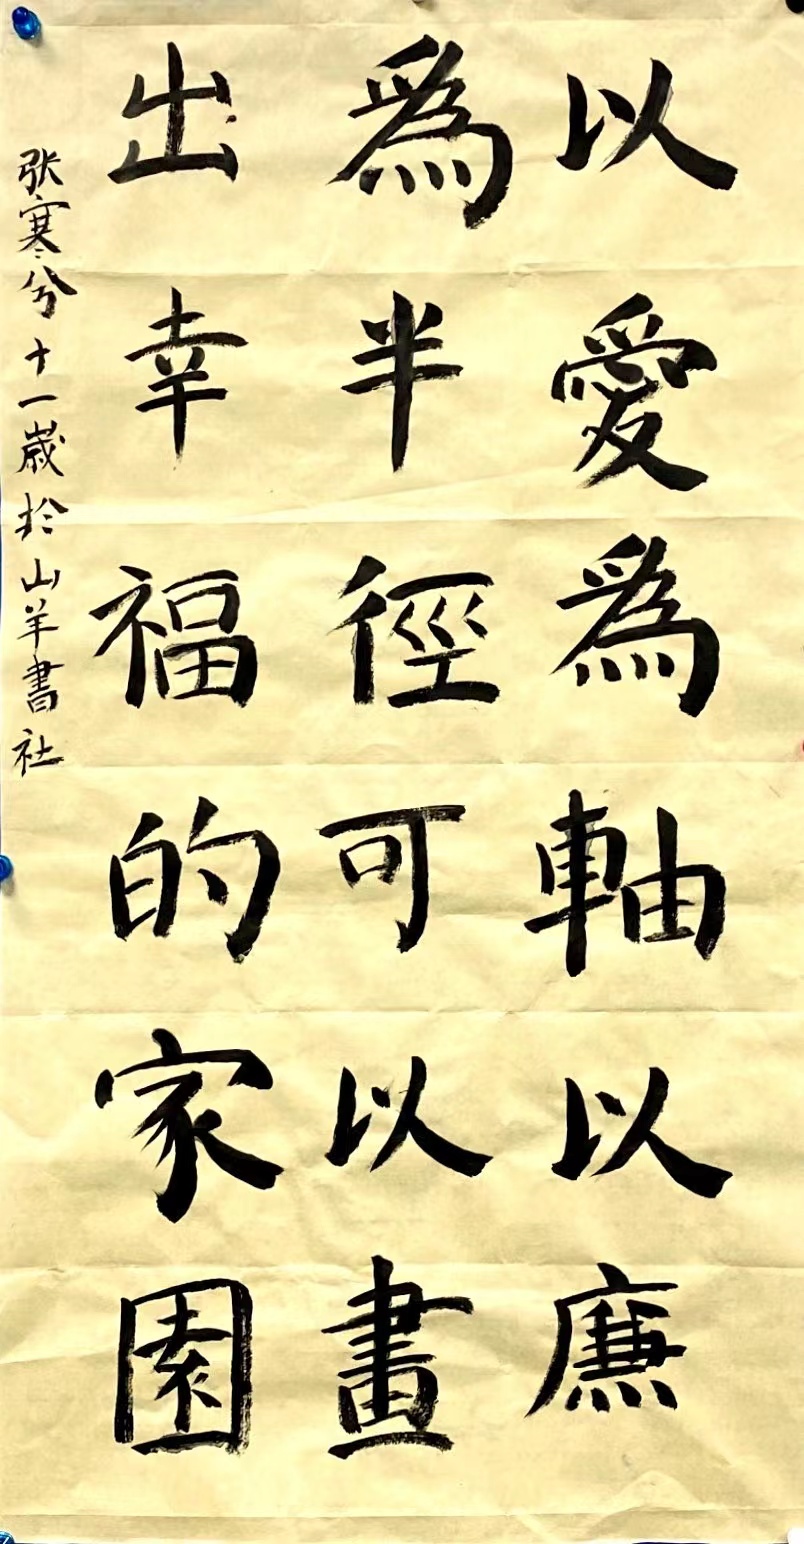 以愛為軸以廉
為半徑可以畫
出幸福的家園
张寒兮十一歲於山羊書社